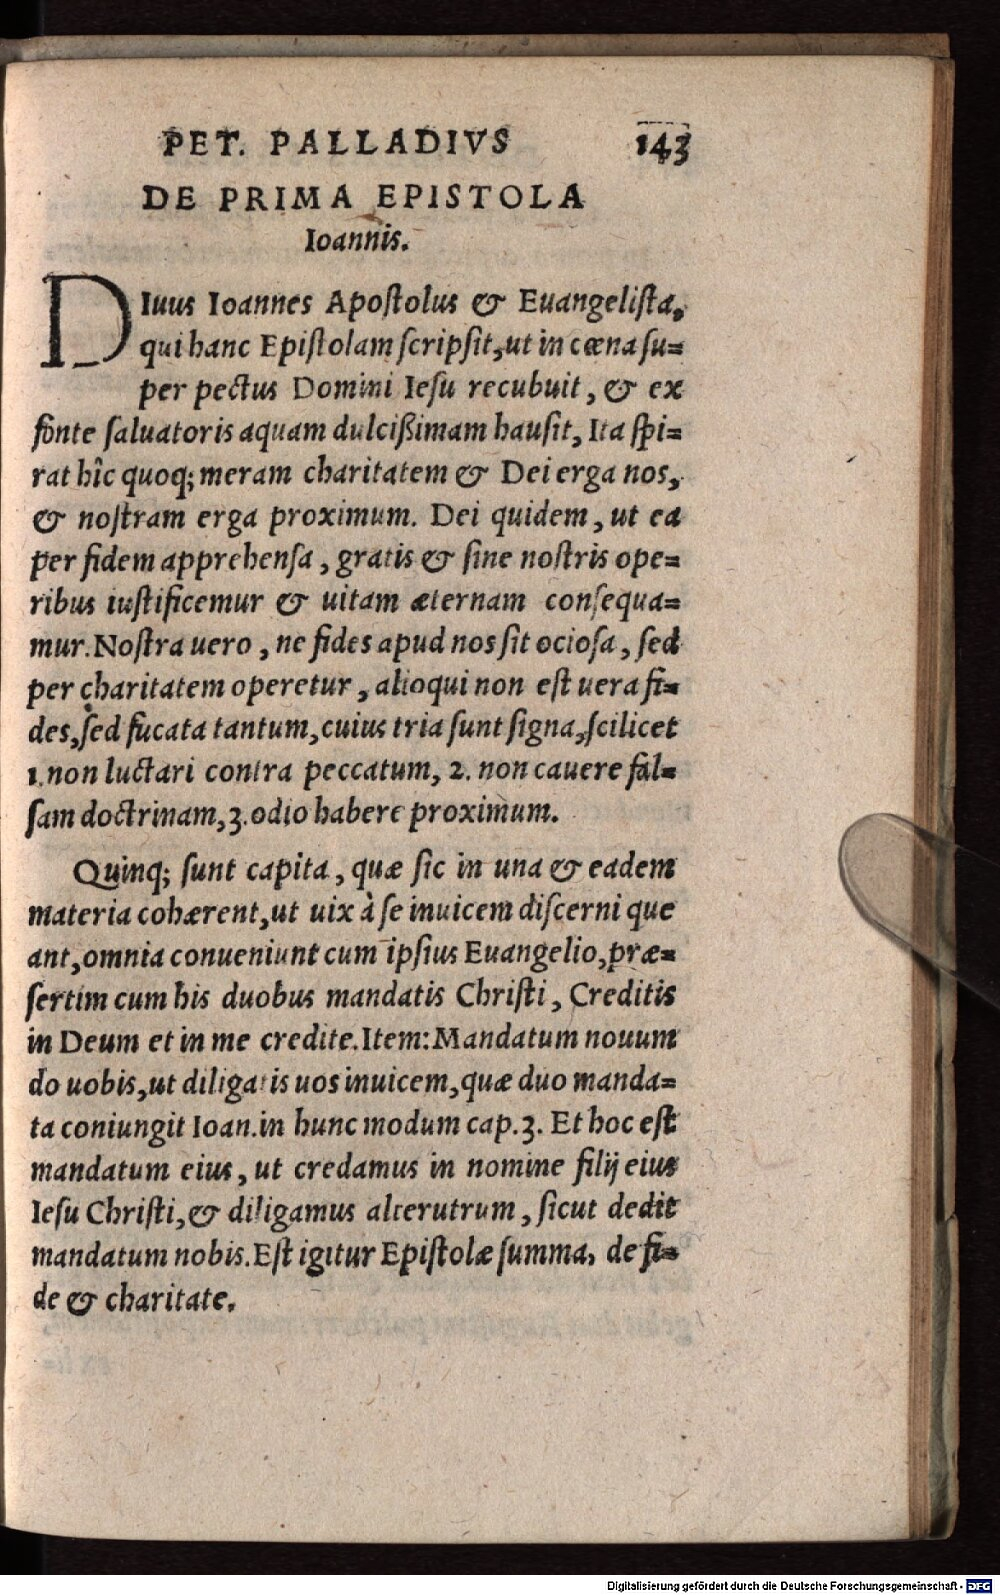 PET. PALLADIVS 143
DE PRIMA EPISTOLA
Ioannis.
DIuus Ioannes Apostolus & Euangelista,
qui hanc Epistolam scripsit, ut in cœna su=
per pectus Domini Iesu recubuit, & ex
fonte saluatoris aquam dulcißimam hausit, Ita spi=
rat hîc quoq; meram charitatem & Dei erga nos,
& nostram erga proximum. Dei quidem, ut ea
per fidem apprehensa, gratis & sine nostris ope=
ribus iustificemur & uitam æternam consequa=
mur. Nostra uero, ne fides apud nos sit ociosa, sed
per charitatem operetur, alioqui non est uera fi=
des, sed fucata tantum, cuius tria sunt signa, scilicet
1. non luctari contra peccatum, 2. non cauere fal=
sam doctrinam, 3. odio habere proximum.
Quinq; sunt capita, quæ sic in una & eadem
materia cohærent, ut uix à se inuicem discerni que
ant, omnia conueniunt cum ipsius Euangelio, præ=
sertim cum his duobus mandatis Christi, Creditis
in Deum et in me credite. Item: Mandatum nouum
do uobis, ut diligatis uos inuicem, quæ duo manda=
ta coniungit Ioan. in hunc modum cap. 3. Et hoc est
mandatum eius, ut credamus in nomine filij eius
Iesu Christi, & diligamus alterutrum, sicut dedit
mandatum nobis. Est igitur Epistolæ summa, de fi=
de & charitate.
Digitalisierung gefördert durch die Deutsche Forschungsgemeinschaft - DFG